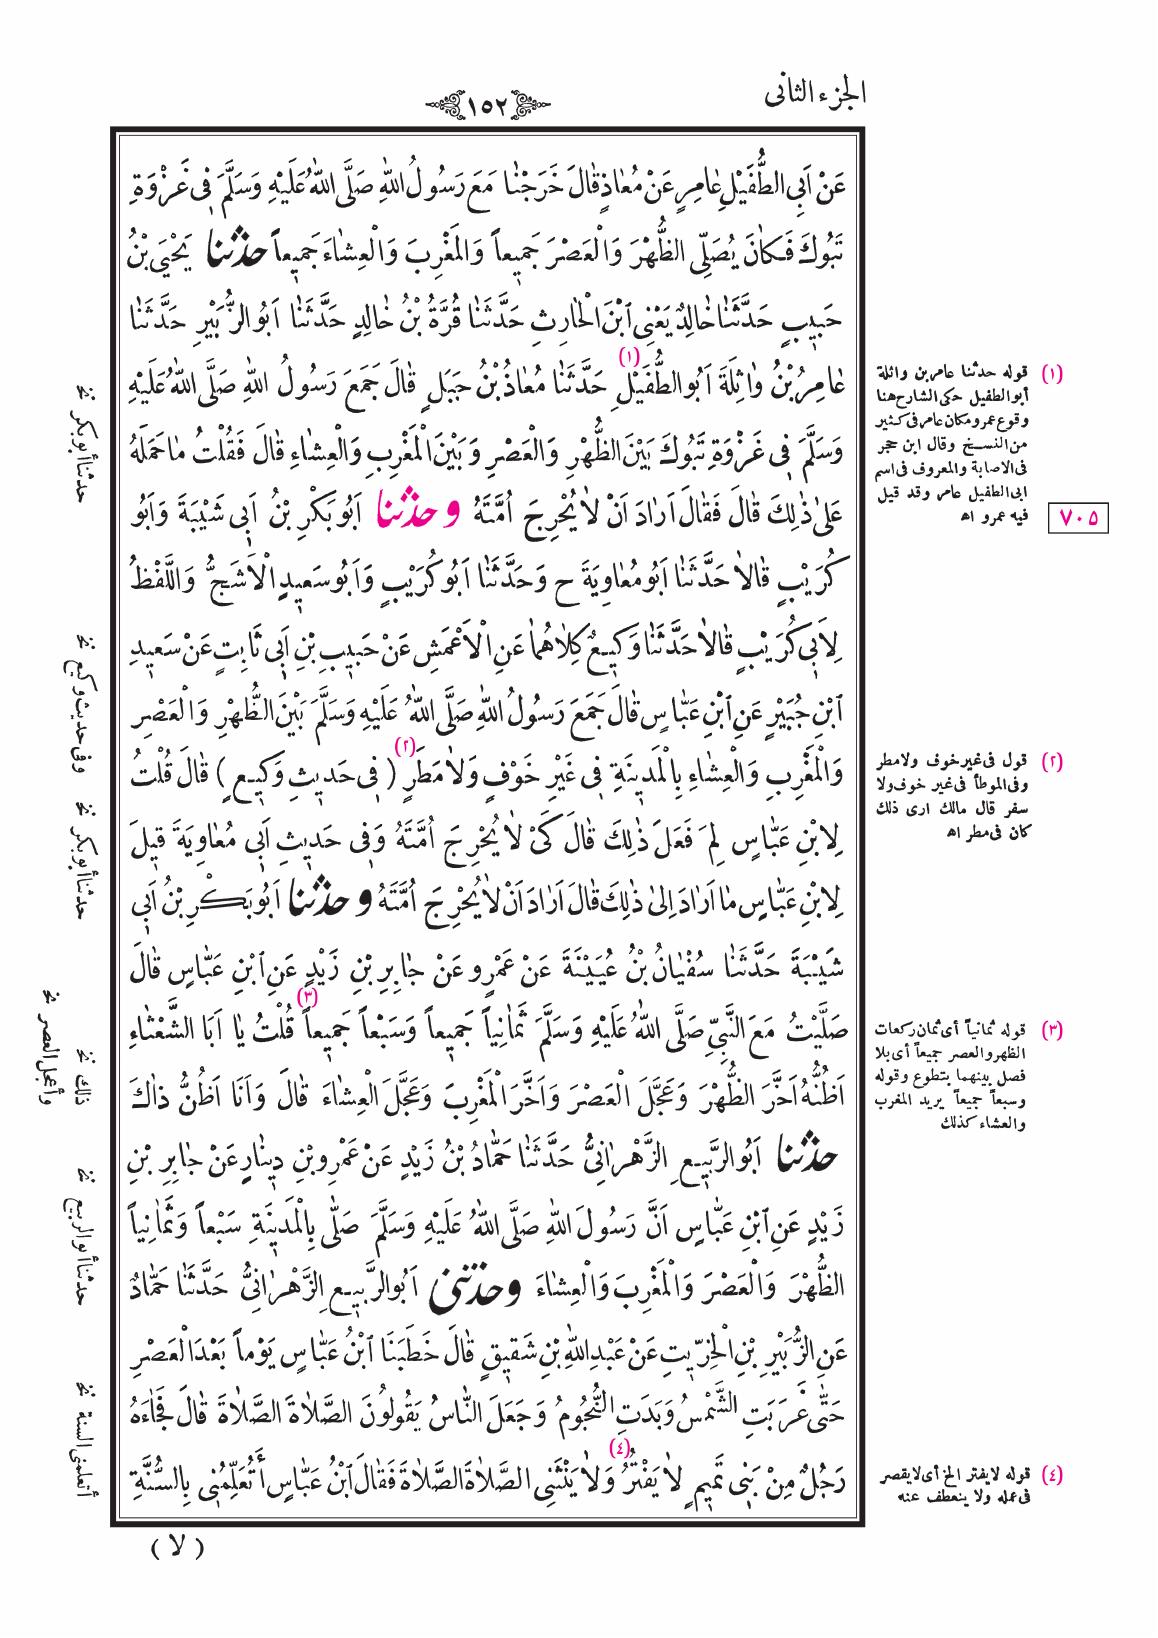 الجزء الثانى
١٥٢
عَنْ اَبِى الطُّفَيْلِ عَامِرٍ عَنْ مُعَاذٍ قَالَ خَرَجْنَا مَعَ رَسُولِ اللّٰهِ صَلَّى اللّٰهُ عَلَيْهِ وَسَلَّمَ فِى غَزْوَةِ
تَبُوكَ فَكَانَ يُصَلِّى الظُّهْرَ وَالْعَصْرَ جَمِيعاً وَالْمَغْرِبَ وَالْعِشَاءَ جَمِيعاً حدثنا يَحْيَى بْنُ
حَبِيبٍ حَدَّثَنَا خَالِدٌ يَعْنِى ابْنَ الْحَارِثِ حَدَّثَنَا قُرَّةُ بْنُ خَالِدٍ حَدَّثَنَا اَبُو الزُّبَيْرِ حَدَّثَنَا
عَامِرُ بْنُ وَاثِلَةَ اَبُو الطُّفَيْلِ (١) حَدَّثَنَا مُعَاذُ بْنُ جَبَلٍ قَالَ جَمَعَ رَسُولُ اللّٰهِ صَلَّى اللّٰهُ عَلَيْهِ
وَسَلَّمَ فِى غَزْوَةِ تَبُوكَ بَيْنَ الظُّهْرِ وَالْعَصْرِ وَبَيْنَ الْمَغْرِبِ وَالْعِشَاءِ قَالَ فَقُلْتُ مَا حَمَلَهُ
عَلَى ذٰلِكَ قَالَ فَقَالَ اَرَادَ اَنْ لَا يُحْرِجَ اُمَّتَهُ وحدثنا اَبُو بَكْرِ بْنُ اَبِى شَيْبَةَ وَاَبُو
كُرَيْبٍ قَالَا حَدَّثَنَا اَبُو مُعَاوِيَةَ ح وَحَدَّثَنَا اَبُو كُرَيْبٍ وَاَبُو سَعِيدٍ الْاَشَجُّ وَاللَّفْظُ
لِاَبِى كُرَيْبٍ قَالَا حَدَّثَنَا وَكِيعٌ كِلَاهُمَا عَنِ الْاَعْمَشِ عَنْ حَبِيبِ بْنِ اَبِى ثَابِتٍ عَنْ سَعِيدِ
ابْنِ جُبَيْرٍ عَنِ ابْنِ عَبَّاسٍ قَالَ جَمَعَ رَسُولُ اللّٰهِ صَلَّى اللّٰهُ عَلَيْهِ وَسَلَّمَ بَيْنَ الظُّهْرِ وَالْعَصْرِ
وَالْمَغْرِبِ وَالْعِشَاءِ بِالْمَدِينَةِ فِى غَيْرِ خَوْفٍ وَلَا مَطَرٍ (٢) ( فِى حَدِيثِ وَكِيعٍ ) قَالَ قُلْتُ
لِابْنِ عَبَّاسٍ لِمَ فَعَلَ ذٰلِكَ قَالَ كَىْ لَا يُحْرِجَ اُمَّتَهُ وَفِى حَدِيثِ اَبِى مُعَاوِيَةَ قِيلَ
لِابْنِ عَبَّاسٍ مَا اَرَادَ اِلَى ذٰلِكَ قَالَ اَرَادَ اَنْ لَا يُحْرِجَ اُمَّتَهُ وحدثنا اَبُو بَكْرِ بْنُ اَبِى
شَيْبَةَ حَدَّثَنَا سُفْيَانُ بْنُ عُيَيْنَةَ عَنْ عَمْرٍو عَنْ جَابِرِ بْنِ زَيْدٍ عَنِ ابْنِ عَبَّاسٍ قَالَ
صَلَّيْتُ مَعَ النَّبِىِّ صَلَّى اللّٰهُ عَلَيْهِ وَسَلَّمَ ثَمَانِياً جَمِيعاً وَسَبْعاً جَمِيعاً (٣) قُلْتُ يَا اَبَا الشَّعْثَاءِ
اَظُنُّهُ اَخَّرَ الظُّهْرَ وَعَجَّلَ الْعَصْرَ وَاَخَّرَ الْمَغْرِبَ وَعَجَّلَ الْعِشَاءَ قَالَ وَاَنَا اَظُنُّ ذَاكَ
حدثنا اَبُو الرَّبِيعِ الزَّهْرَانِىُّ حَدَّثَنَا حَمَّادُ بْنُ زَيْدٍ عَنْ عَمْرِو بْنِ دِينَارٍ عَنْ جَابِرِ بْنِ
زَيْدٍ عَنِ ابْنِ عَبَّاسٍ اَنَّ رَسُولَ اللّٰهِ صَلَّى اللّٰهُ عَلَيْهِ وَسَلَّمَ صَلَّى بِالْمَدِينَةِ سَبْعاً وَثَمَانِياً
الظُّهْرَ وَالْعَصْرَ وَالْمَغْرِبَ وَالْعِشَاءَ وحدثنى اَبُو الرَّبِيعِ الزَّهْرَانِىُّ حَدَّثَنَا حَمَّادٌ
عَنِ الزُّبَيْرِ بْنِ الْخِرِّيتِ عَنْ عَبْدِ اللّٰهِ بْنِ شَقِيقٍ قَالَ خَطَبَنَا ابْنُ عَبَّاسٍ يَوْماً بَعْدَ الْعَصْرِ
حَتَّى غَرَبَتِ الشَّمْسُ وَبَدَتِ النُّجُومُ وَجَعَلَ النَّاسُ يَقُولُونَ الصَّلَاةَ الصَّلَاةَ قَالَ فَجَاءَهُ
رَجُلٌ مِنْ بَنِى تَمِيمٍ لَا يَفْتُرُ (٤) وَلَا يَنْثَنِى الصَّلَاةَ الصَّلَاةَ فَقَالَ ابْنُ عَبَّاسٍ أَتُعَلِّمُنِى بِالسُّنَّةِ
( لا )
(١) قوله حدثنا عامر بن واثلة
أبو الطفيل حكى الشارح هنا
وقوع عمرو مكان عامر فى كثير
من النسخ وقال ابن حجر
فى الاصابة والمعروف فى اسم
ابى الطفيل عامر وقد قيل
فيه عمرو اه
٧٠٥
(٢) قول فى غير خوف ولا مطر
وفى الموطأ فى غير خوف ولا
سفر قال مالك ارى ذلك
كان فى مطر اه
(٣) قوله ثمانياً أى ثمان ركعات
الظهر والعصر جميعاً أى بلا
فصل بينهما بتطوع وقوله
وسبعاً جميعاً يريد المغرب
والعشاء كذلك
(٤) قوله لا يفتر الخ أى لا يقصر
فى عمله ولا ينعطف عنه
حدثنا أبو بكر نخ
وفى حديث وكيع نخ
حدثنا أبو بكر نخ
ذلك نخ
وأعجل العصر نخ
حدثنا أبو الربيع نخ
أتعلمنى السنة نخ